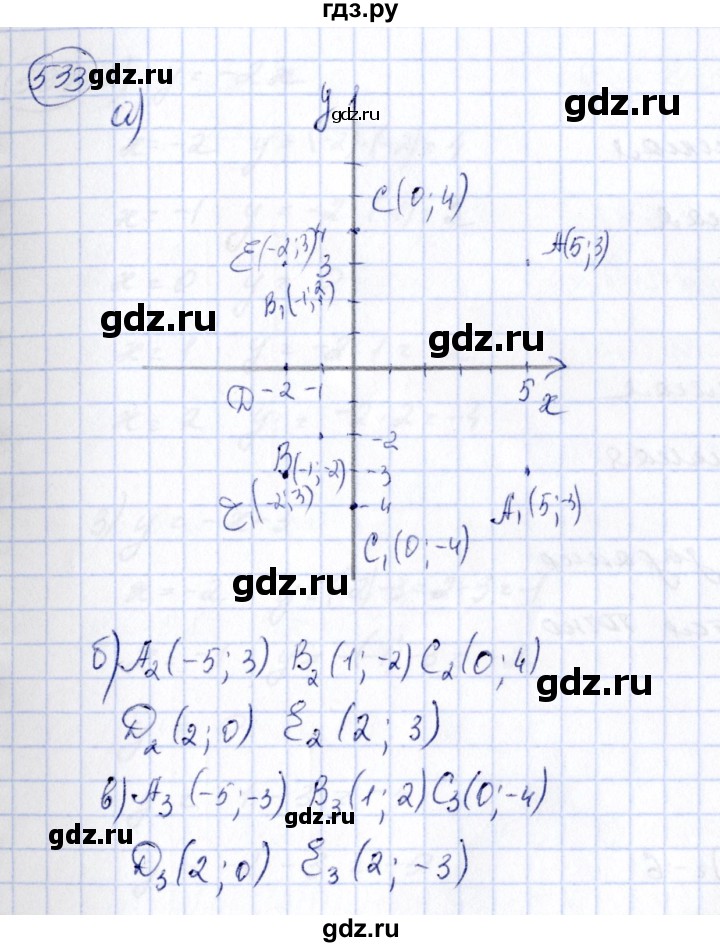 гдз.ру
533 gdz.ru
а) y 1
gdz.ru
C(0; 4)
E(-2; 3) 4 A(5; 3)
3
B₁(-1; 2)
gdz.ru
gdz.ru
D -2 -1 5 x
-2
B(-1; -2) -3
E₁(-2; 3) -4 A₁(5; -3)
C₁(0; -4)
gdz.ru
б) A₂(-5; 3) B₂(1; -2) C₂(0; 4)
gdz.ru
D₂(2; 0) E₂(2; 3)
в) A₃(-5; -3) B₃(1; 2) C₃(0; -4)
gdz.ru
gdz.ru
D₃(2; 0) E₃(2; -3)
gdz.ru